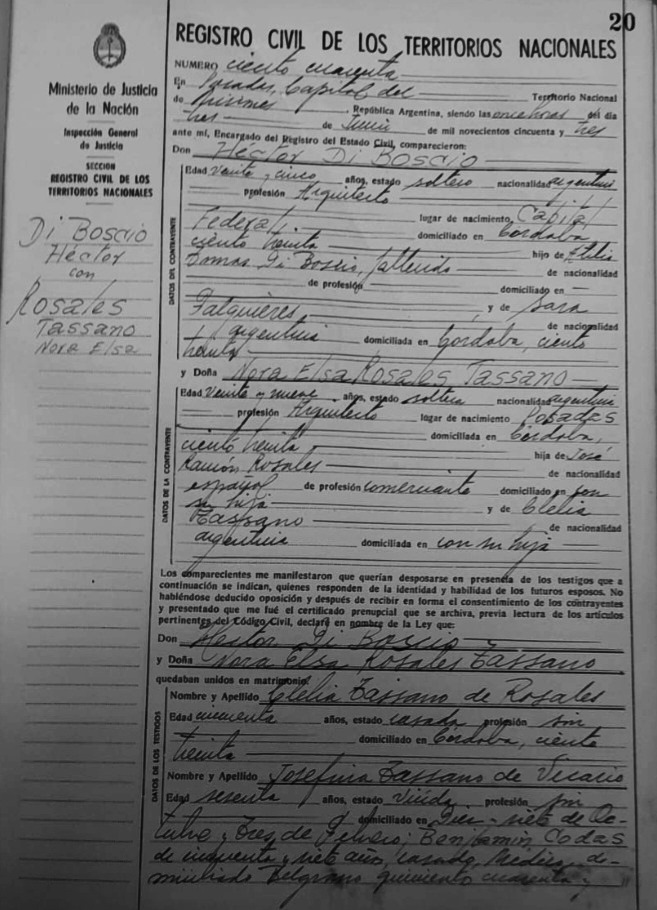 20
Ministerio de Justicia
de la Nación
Inspección General
de Justicia
SECCION
REGISTRO CIVIL DE LOS
TERRITORIOS NACIONALES
Di Boscio
Héctor
con
Rosales
Tassano
Nora Elsa
REGISTRO CIVIL DE LOS TERRITORIOS NACIONALES
NUMERO ciento cuarenta
En Posadas, Capital del Territorio Nacional
de Misiones, República Argentina, siendo las once horas del día
tres de Junio de mil novecientos cincuenta y tres
ante mí, Encargado del Registro del Estado Civil, comparecieron:
Don Héctor Di Boscio
DATOS DEL CONTRAYENTE
Edad Veinte y cinco años, estado soltero nacionalidad argentina
profesión Arquitecto
lugar de nacimiento, Capital
Federal domiciliado en Córdoba
ciento treinta hijo de
Di Boscio, fallecido de nacionalidad
de profesión domiciliado en
y de Sara
de nacionalidad
argentina domiciliada en Córdoba, ciento
treinta
y Doña Nora Elsa Rosales Tassano
DATOS DE LA CONTRAYENTE
Edad Veinte y nueve años, estado soltera nacionalidad argentina
profesión Arquitecto lugar de nacimiento Posadas
domiciliada en Córdoba,
ciento treinta hija de José
Ramón Rosales de nacionalidad
español de profesión comerciante domiciliado en con
su hija y de Clelia
Tassano de nacionalidad
argentina domiciliada en con su hija
Los comparecientes me manifestaron que querían desposarse en presencia de los testigos que a
continuación se indican, quienes responden de la identidad y habilidad de los futuros esposos. No
habiéndose deducido oposición y después de recibir en forma el consentimiento de los contrayentes
y presentado que me fué el certificado prenupcial que se archiva, previa lectura de los artículos
pertinentes del Código Civil, declaré en nombre de la Ley que:
Don Héctor Di Boscio
y Doña Nora Elsa Rosales Tassano
quedaban unidos en matrimonio.
DATOS DE LOS TESTIGOS
Nombre y Apellido Clelia Tassano de Rosales
Edad cincuenta años, estado casada profesión sin
domiciliado en Córdoba, ciento
treinta
Nombre y Apellido Josefina Tassano de Vicario
Edad sesenta años, estado Viúda profesión sin
domiciliado en Diez y siete de Oc-
tubre y Tres de Febrero; Benjamin Codas
de cincuenta y siete años, casado, Médico, do-
miciliado Belgrano quiniento cuarenta